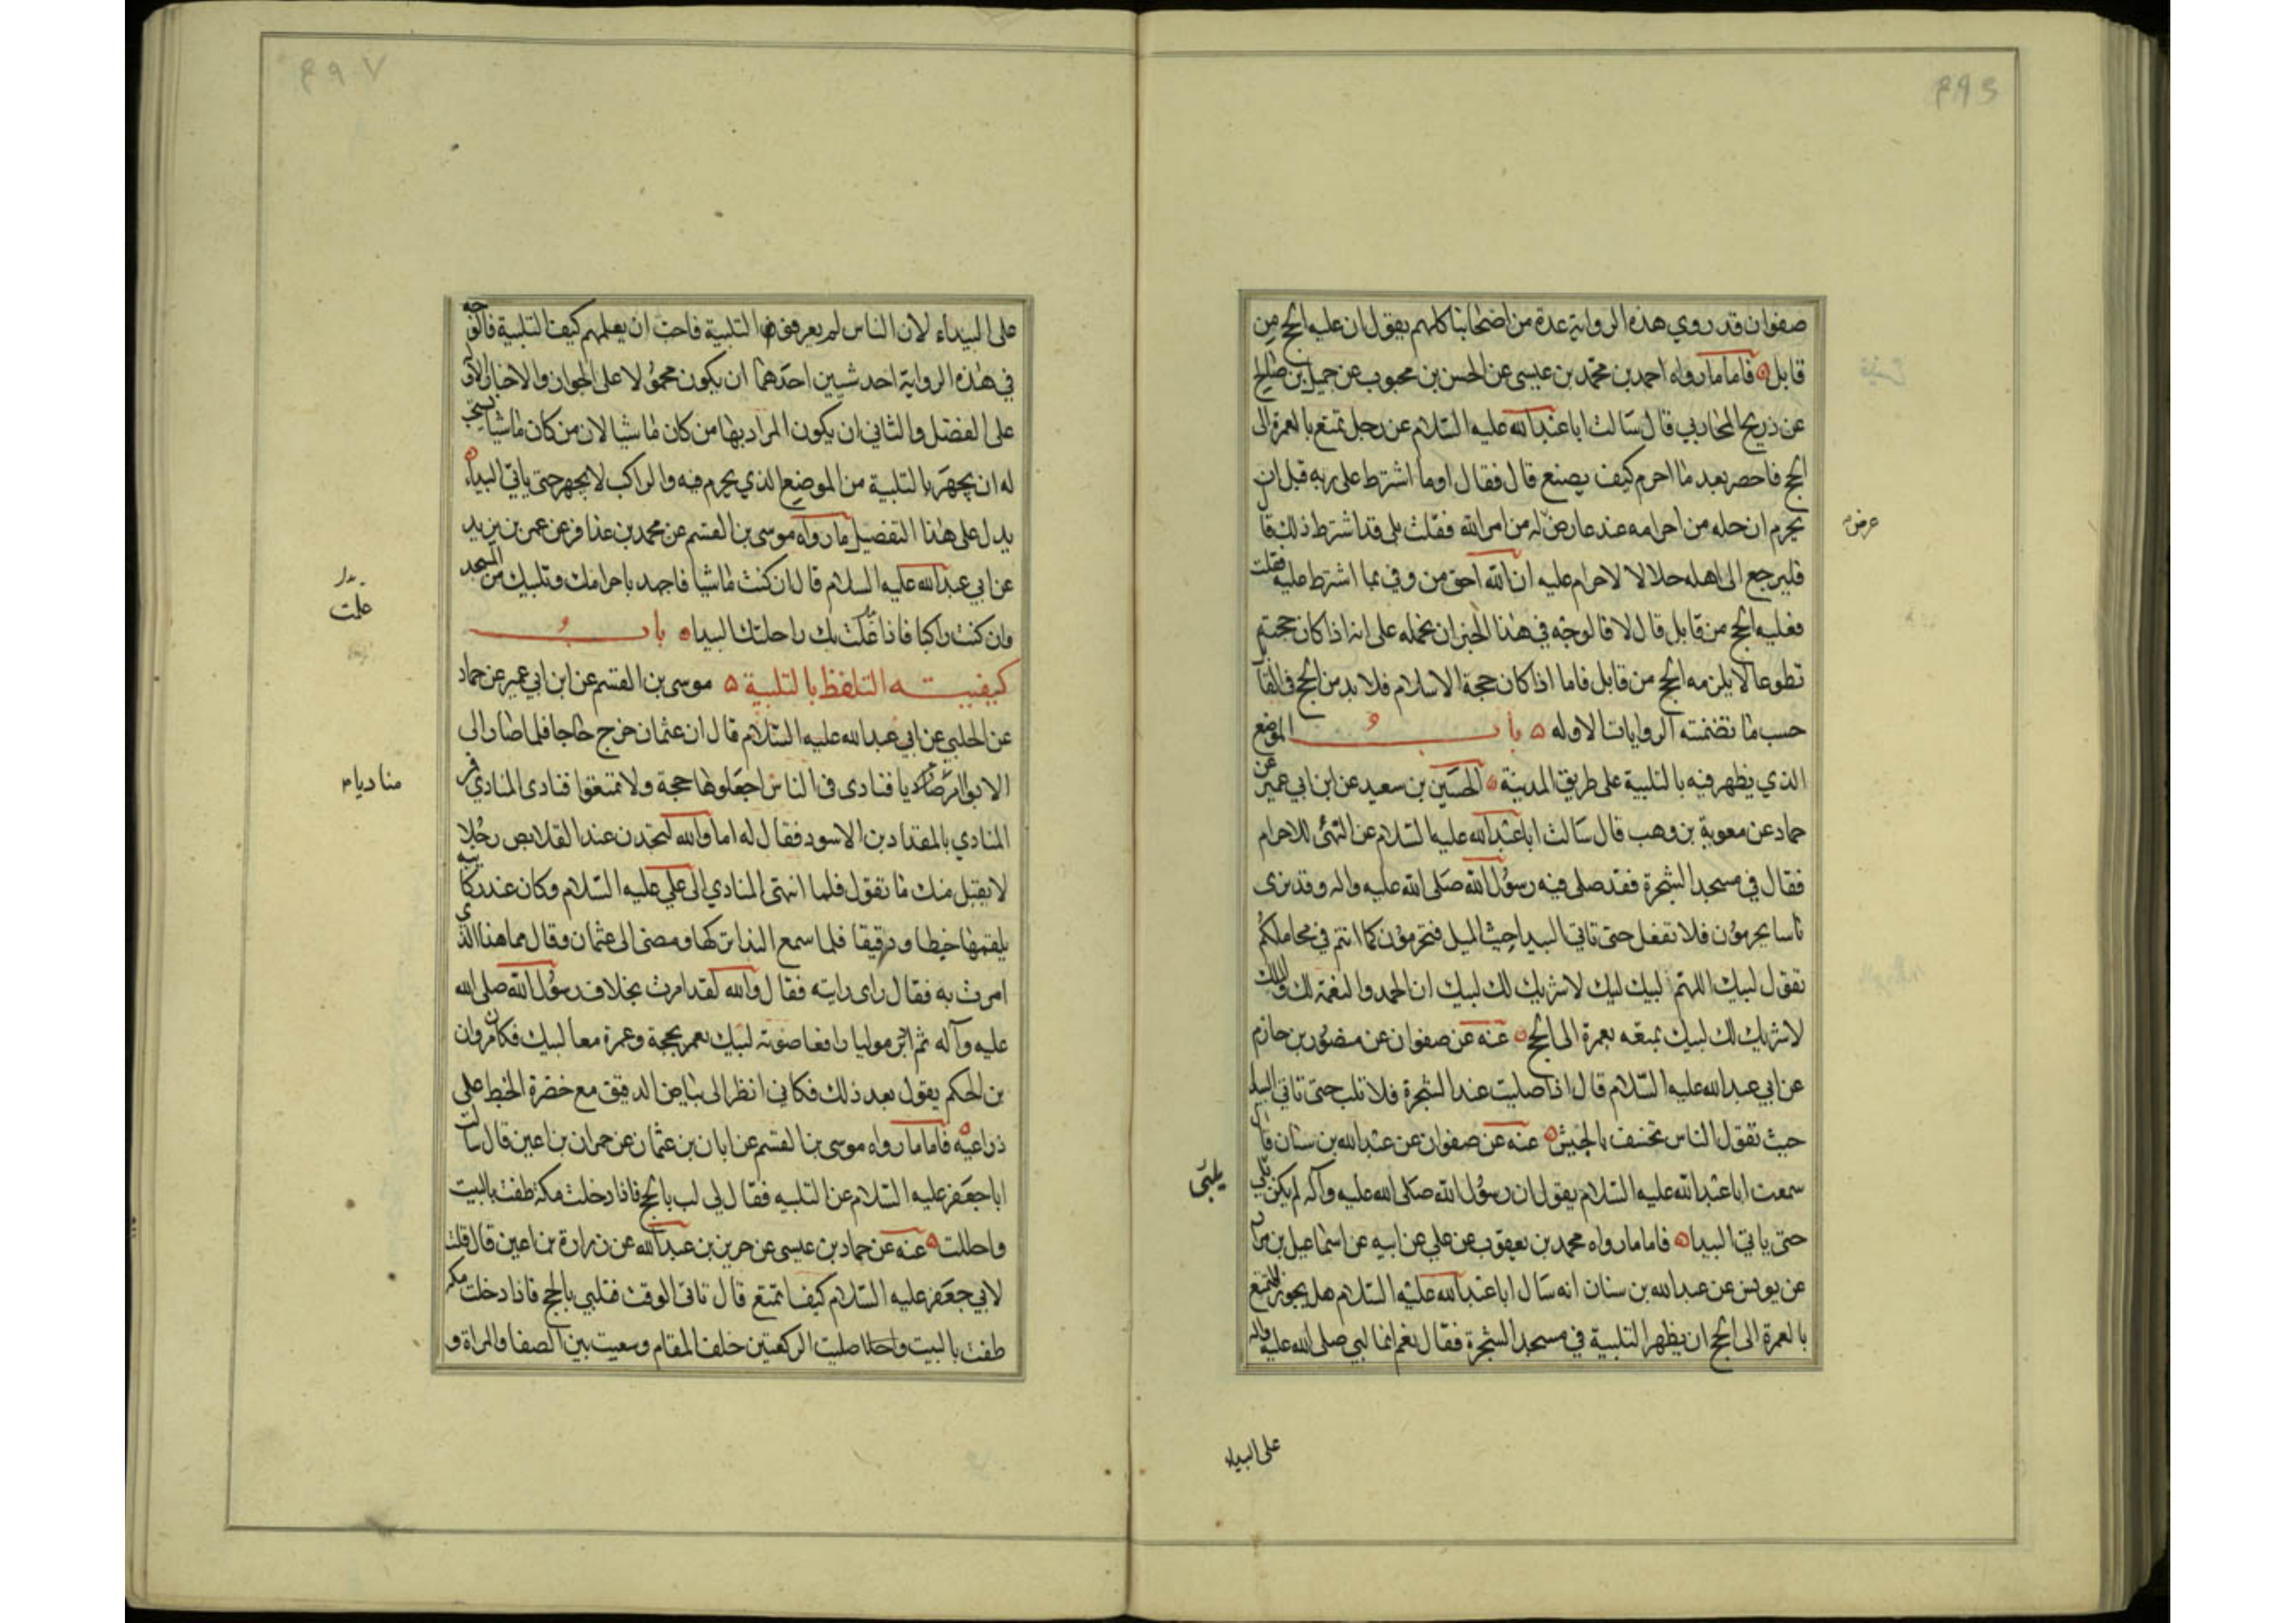 صفوان قد روي هذه الرواية عدة من اصحابنا كلهم يقول ان عليه الحج من
قابل فاما ما رواه احمد بن محمد بن عيسى عن الحسن بن محبوب عن جميل بن صالح
عن ذريح المحاربي قال سالت ابا عبد الله عليه السلام عن رجل تمتع بالعمرة الى
الحج فاحصر بعد ما احرم كيف يصنع قال فقال اوما اشترط على ربه قبل ان
يحرم ان حله من احرامه عند عارض له من امر الله فقلت بلى قد اشترط ذلك قال
عرض
فليرجع الى اهله حلالا لا احرام عليه ان الله احق من وفي بما اشترط عليه فقلت
فعليه الحج من قابل قال لا قالوجه في هذا الخبر ان نحمله على انه اذا كان حجته
تطوعا لا يلزمه الحج من قابل فاما اذا كان حجة الاسلام فلا بد من الحج في القابل
حسب ما تضمنته الروايات الاوله باب الموضع
الذي يظهر فيه بالتلبية على طريق المدينة الحسين بن سعيد عن ابن ابي عمير عن
حماد عن معوية بن وهب قال سالت ابا عبد الله عليه السلام عن التهئ للاحرام
فقال في مسجد الشجرة فقد صلى فيه رسول الله صلى الله عليه واله وقد نرى
ناسا يحرمون فلا تفعل حتى تاتي البيدا حيث الميل فتحرمون كما انتم في محاملكم
تقول لبيك اللهم لبيك لبيك لا شريك لك لبيك ان الحمد والنعمة لك والملك
لا شريك لك لبيك بمتعه بعمرة الى الحج عنه عن صفوان عن منصور بن حازم
عن ابي عبد الله عليه السلام قال اذا صليت عند الشجرة فلا تلب حتى تاتي البيدا
حيث تقول الناس تخسف بالجيش عنه عن صفوان عن عبد الله بن سنان قال
سمعت ابا عبد الله عليه السلام يقول ان رسول الله صلى الله عليه وآله لم يكن يلبي
يلبي
حتى ياتي البيدا فاما ما رواه محمد بن يعقوب عن علي عن ابيه عن اسماعيل بن مرار
عن يونس عن عبد الله بن سنان انه سال ابا عبد الله عليه السلام هل يجوز للمتمتع
بالعمرة الى الحج ان يظهر التلبية في مسجد الشجرة فقال نعم انما لبي صلى الله عليه واله
على البيداء
على البيداء لان الناس لم يعرفوا التلبية فاحب ان يعلمهم كيف التلبية فالوجه
في هذه الرواية احد شيين احدهما ان يكون محمولا على الجواز والاخبار الاوله
على الفضل والثاني ان يكون المراد بها من كان ماشيا لان من كان ماشيا يستحب
له ان يجهر بالتلبية من الموضع الذي يحرم فيه والراكب لا يجهر حتى ياتي البيداء
يدل على هذا التفصيل ما رواه موسى بن القسم عن محمد بن عذافر عن عمر بن يزيد
عن ابي عبد الله عليه السلام قال ان كنت ماشيا فاجهد باحرامك وتلبيك من المسجد
وان كنت راكبا فاذا علت بك راحلتك البيدا باب
علت
كيفيته التلفظ بالتلبية موسى بن القسم عن ابن ابي عمير عن حماد
عن الحلبي عن ابي عبد الله عليه السلام قال ان عثمان خرج حاجا فلما صار الى
الابواء امر مناديا فنادى في الناس اجعلوها حجة ولا تمتعوا فنادى المنادي فمر
مناديا م
المنادي بالمقداد بن الاسود فقال له اما والله لتجدن عند القلايص رجلا
لا يقبل منك ما تقول فلما انتهى المنادي الى علي عليه السلام وكان عند ركايبه
يلقمها خبطا ودقيقا فلما سمع النداء تركها ومضى الى عثمان وقال مما هذا الذي
امرت به فقال راى رايته فقال والله لقد امرت بخلاف رسول الله صلى الله
عليه وآله ثم ادبر موليا رافعا صوته لبيك بحجة وعمرة معا لبيك فكان مروان
بن الحكم يقول بعد ذلك فكاني انظر الى بياض الدقيق مع خضرة الخبط على
ذراعيه فاما ما رواه موسى بن القسم عن ابان بن عثمان عن حمران بن اعين قال سالت
ابا جعفر عليه السلام عن التلبيه فقال لي لب بالحج فاذا دخلت مكة طفت بالبيت
واحللت عنه عن حماد بن عيسى عن حريز بن عبد الله عن زرارة بن اعين قال قلت
لابي جعفر عليه السلام كيف اتمتع قال تاتي الوقت فتلبي بالحج فاذا دخلت مكة
طفت بالبيت وصليت الركعتين خلف المقام وسعيت بين الصفا والمراة و